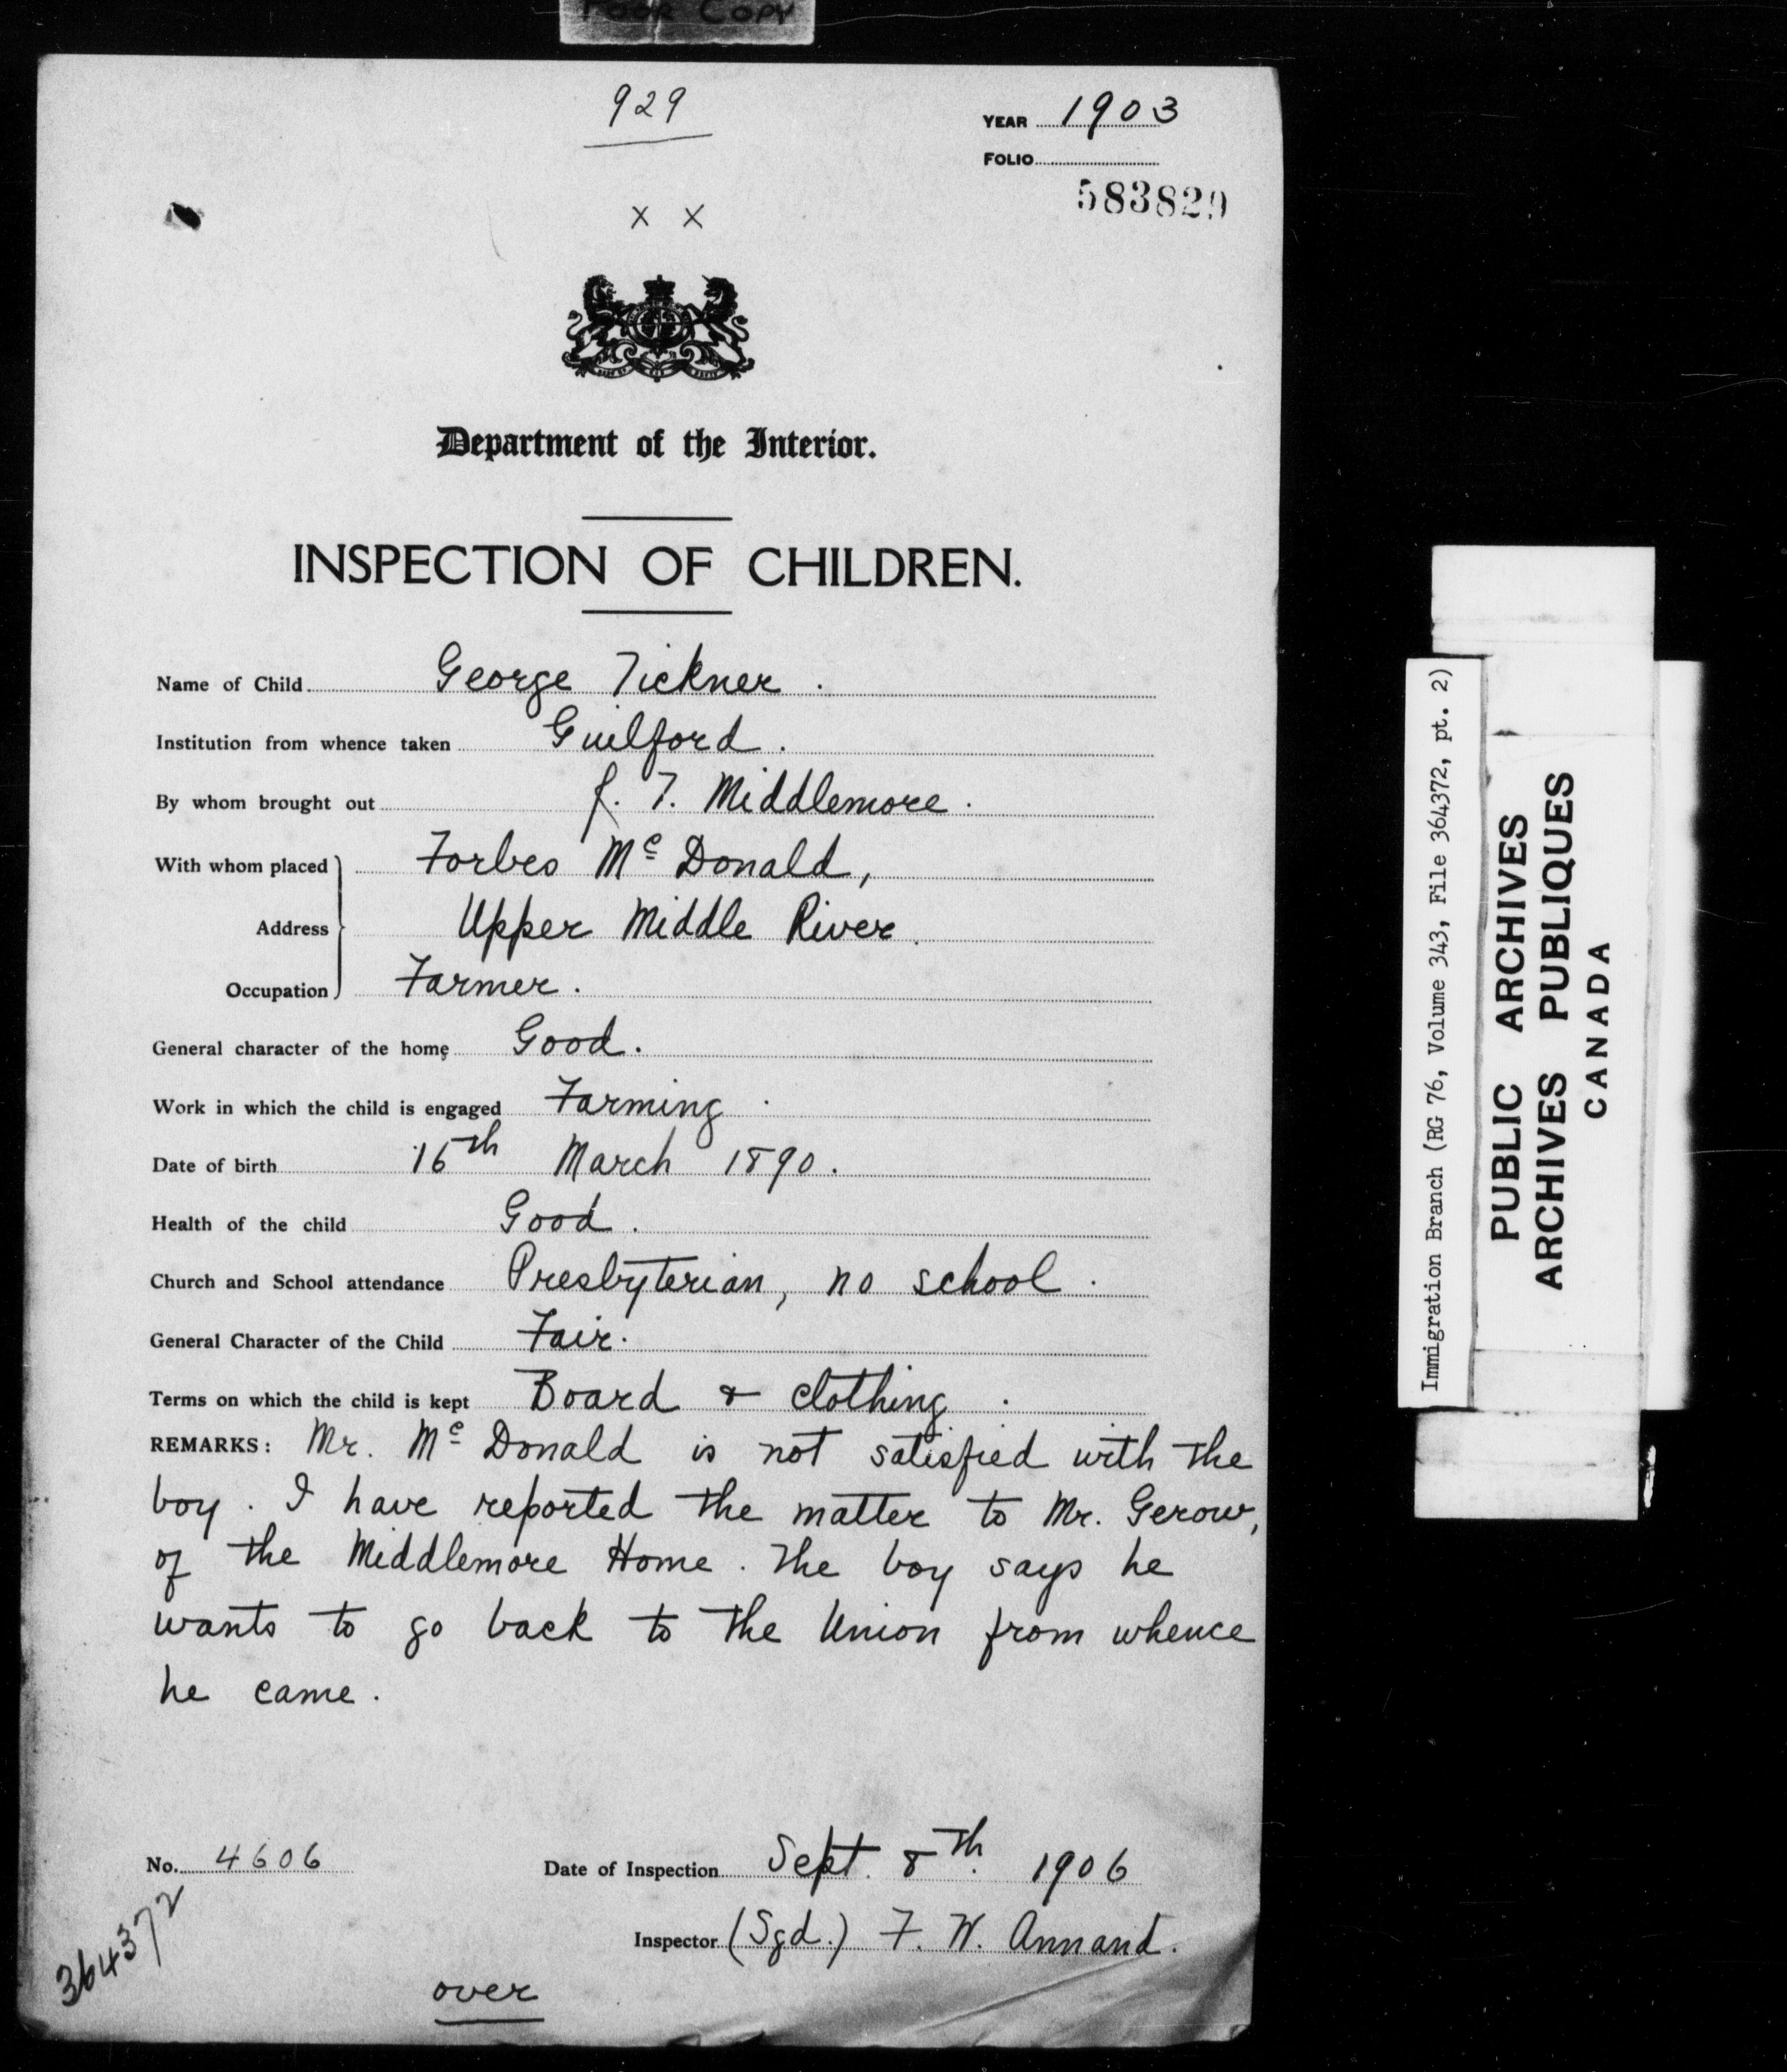 Poor Copy
929
YEAR 1903
FOLIO
583829
x x
Department of the Interior.
INSPECTION OF CHILDREN.
Name of Child George Tickner.
Institution from whence taken Guilford.
By whom brought out J. T. Middlemore.
With whom placed Forbes Mc Donald,
Address Upper Middle River.
Occupation Farmer.
General character of the home Good.
Work in which the child is engaged Farming.
Date of birth 16th March 1890.
Health of the child Good.
Church and School attendance Presbyterian, no school.
General Character of the Child Fair.
Terms on which the child is kept Board & clothing.
REMARKS: Mr. Mc Donald is not satisfied with the
boy. I have reported the matter to Mr. Gerow,
of the Middlemore Home. The boy says he
wants to go back to the Union from whence
he came.
No. 4606
Date of Inspection Sept. 8th. 1906
Inspector (Sgd.) F. W. Annand.
364372
over
Immigration Branch (RG 76, Volume 343, File 364372, pt. 2)
PUBLIC ARCHIVES
ARCHIVES PUBLIQUES
CANADA